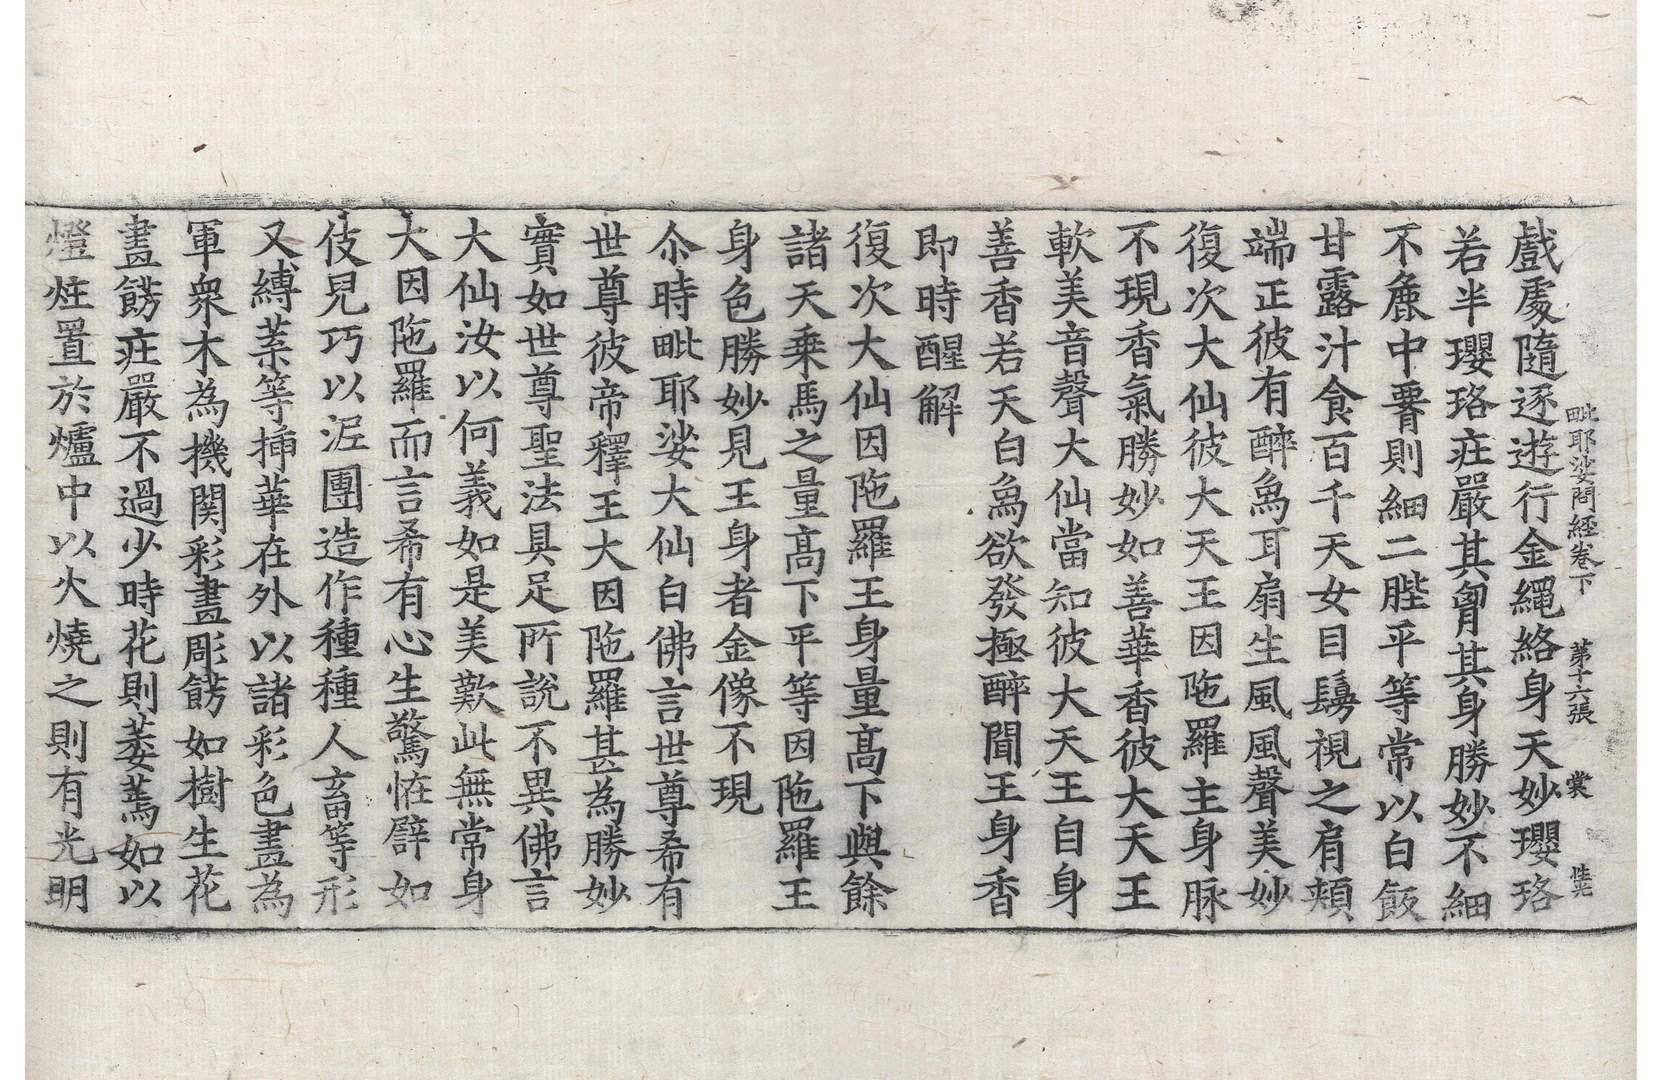 毗耶娑問經卷下　第十六張　裳
戲處隨逐遊行金繩絡身天妙瓔珞
若半瓔珞庄嚴其胷其身勝妙不細
不麁中要則細二䏶平等常以白飯
甘露汁食百千天女目瞩視之肩頰
端正彼有醉烏耳扇生風風聲美妙
復次大仙彼大天王因陁羅主身脉
不現香氣勝妙如善華香彼大天王
軟美音聲大仙當知彼大天王自身
善香若天白烏欲發極醉聞王身香
即時醒解
復次大仙因陁羅王身量高下與餘
諸天乗馬之量高下平等因陁羅王
身色勝妙見王身者金像不現
尒時毗耶娑大仙白佛言世尊希有
世尊彼帝釋王大因陁羅甚為勝妙
實如世尊聖法具足所說不異佛言
大仙汝以何義如是美歎此無常身
大因陁羅而言希有心生驚恠譬如
伎兒巧以泥團造作種種人畜等形
又縛葇等揷華在外以諸彩色畫為
軍衆木為機関彩畫彫餝如樹生花
畫餝庄嚴不過少時花則萎蔫如以
燈炷置於爐中以火燒之則有光明